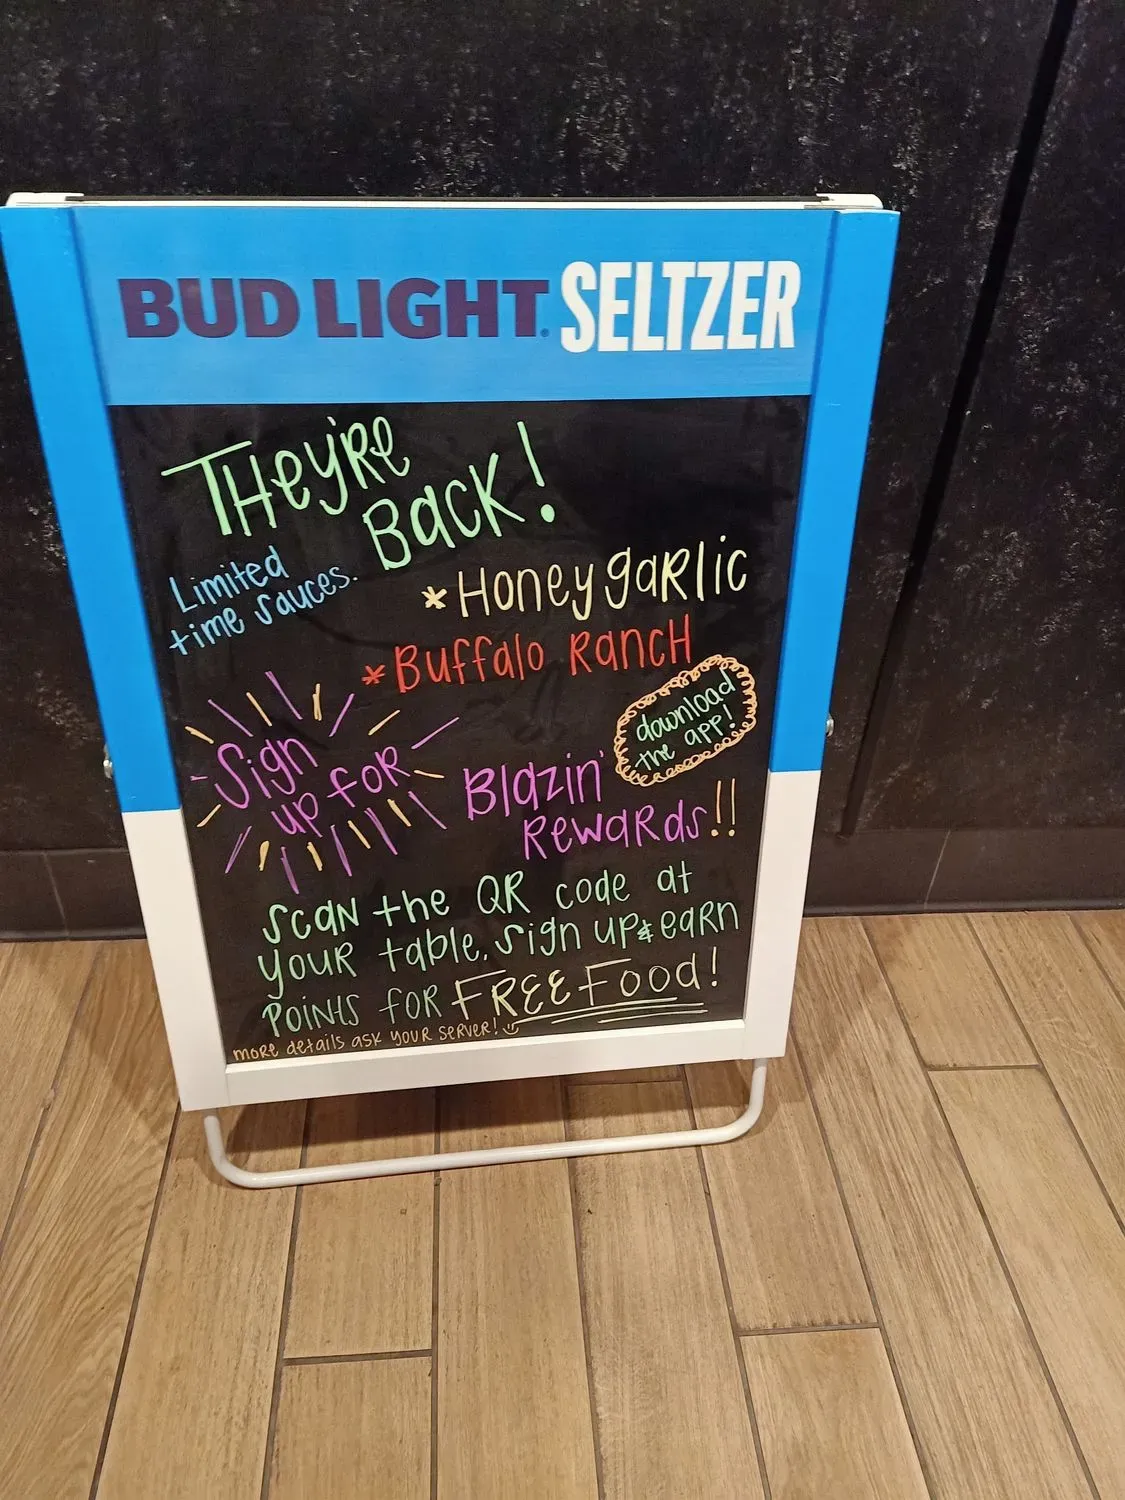 BUD LIGHT SELTZER
THey're
Back!
Limited
time sauces.
* Honey gaRlic
* Buffalo RancH
download
the app!
Sign
up foR
Blazin'
Rewards!!
Scan the QR code at
youR table, sign up & eaRn
points foR FREE Food!
moRe details ask youR seRveR! :)